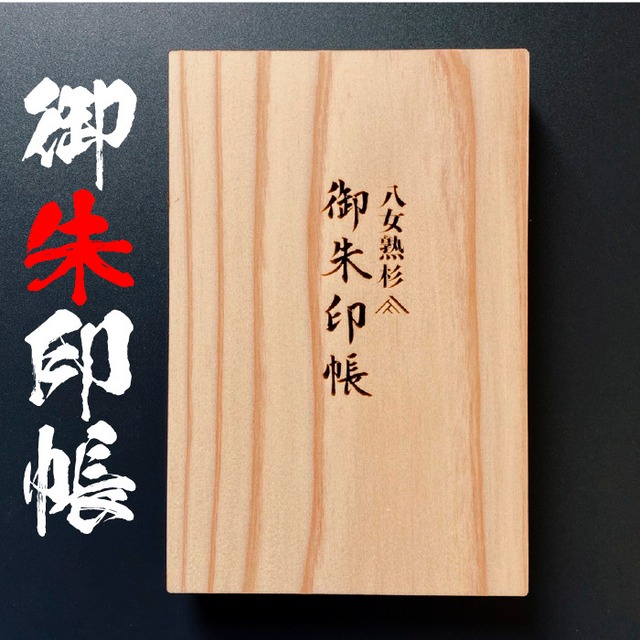 御朱印帳
八女熟杉
御朱印帳